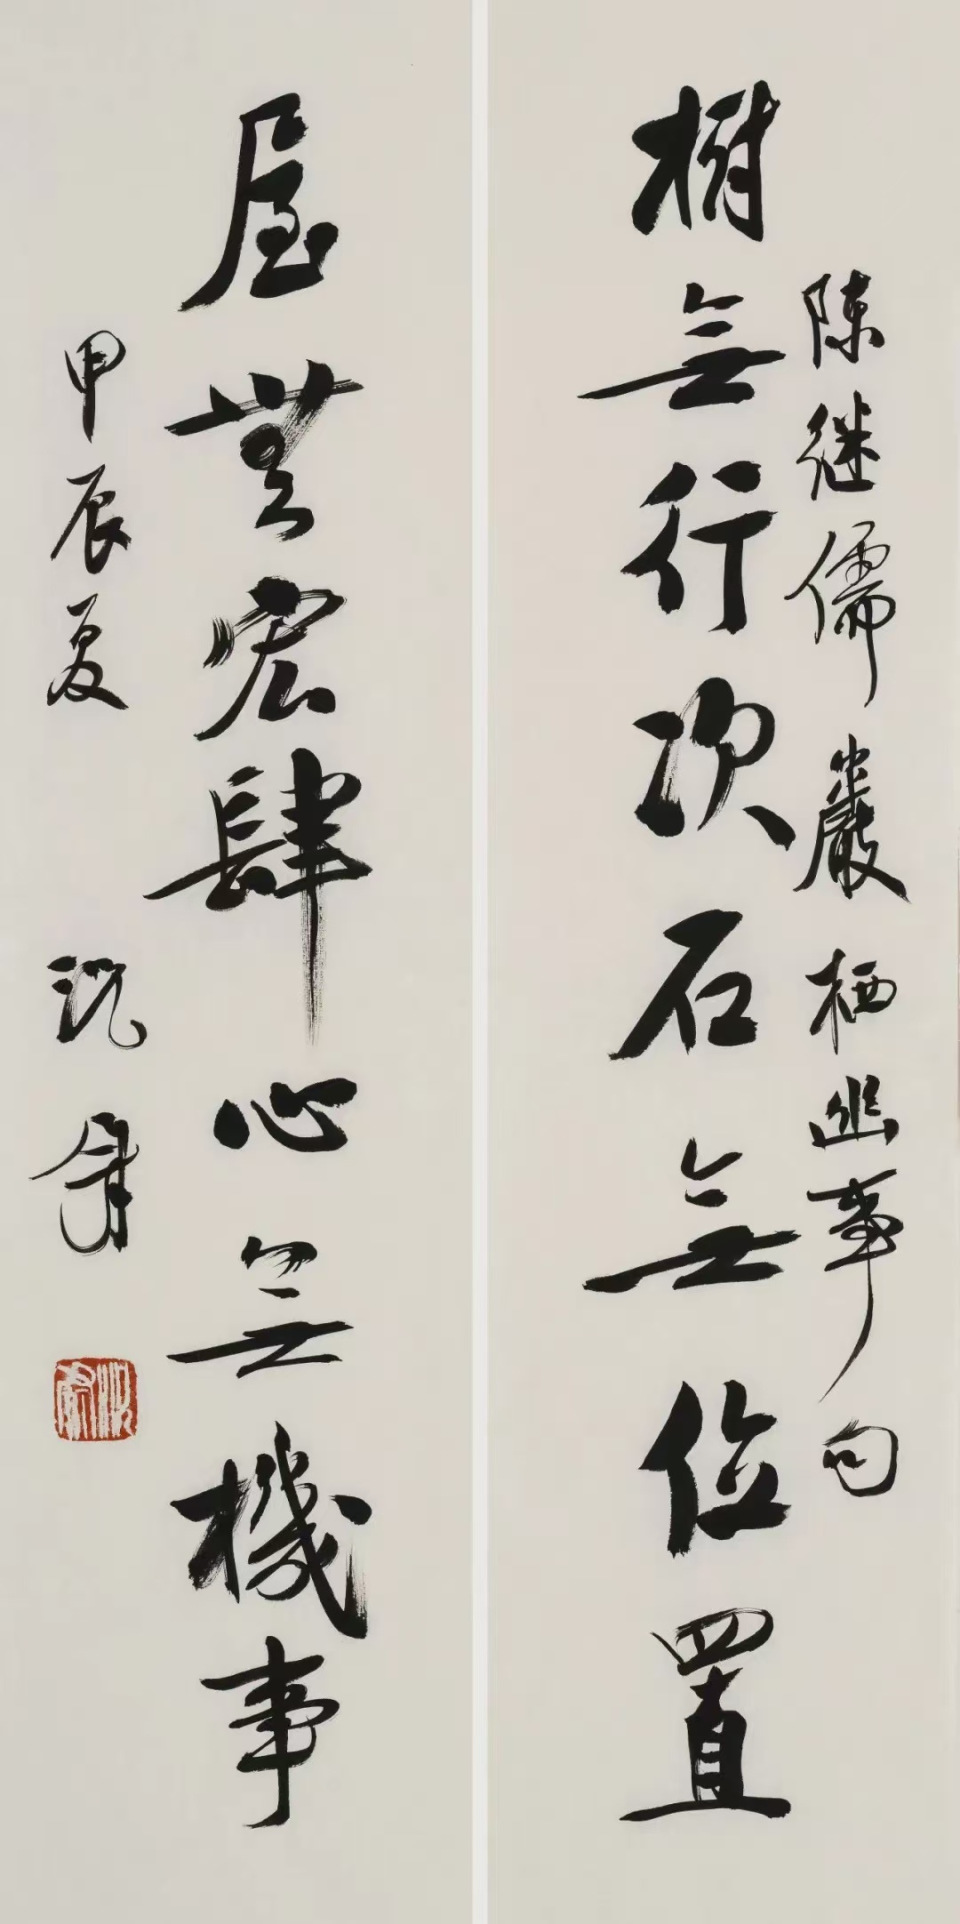 陳继儒巖栖幽事句
樹無行次石無位置
屋無宏肆心無機事
甲辰夏沈